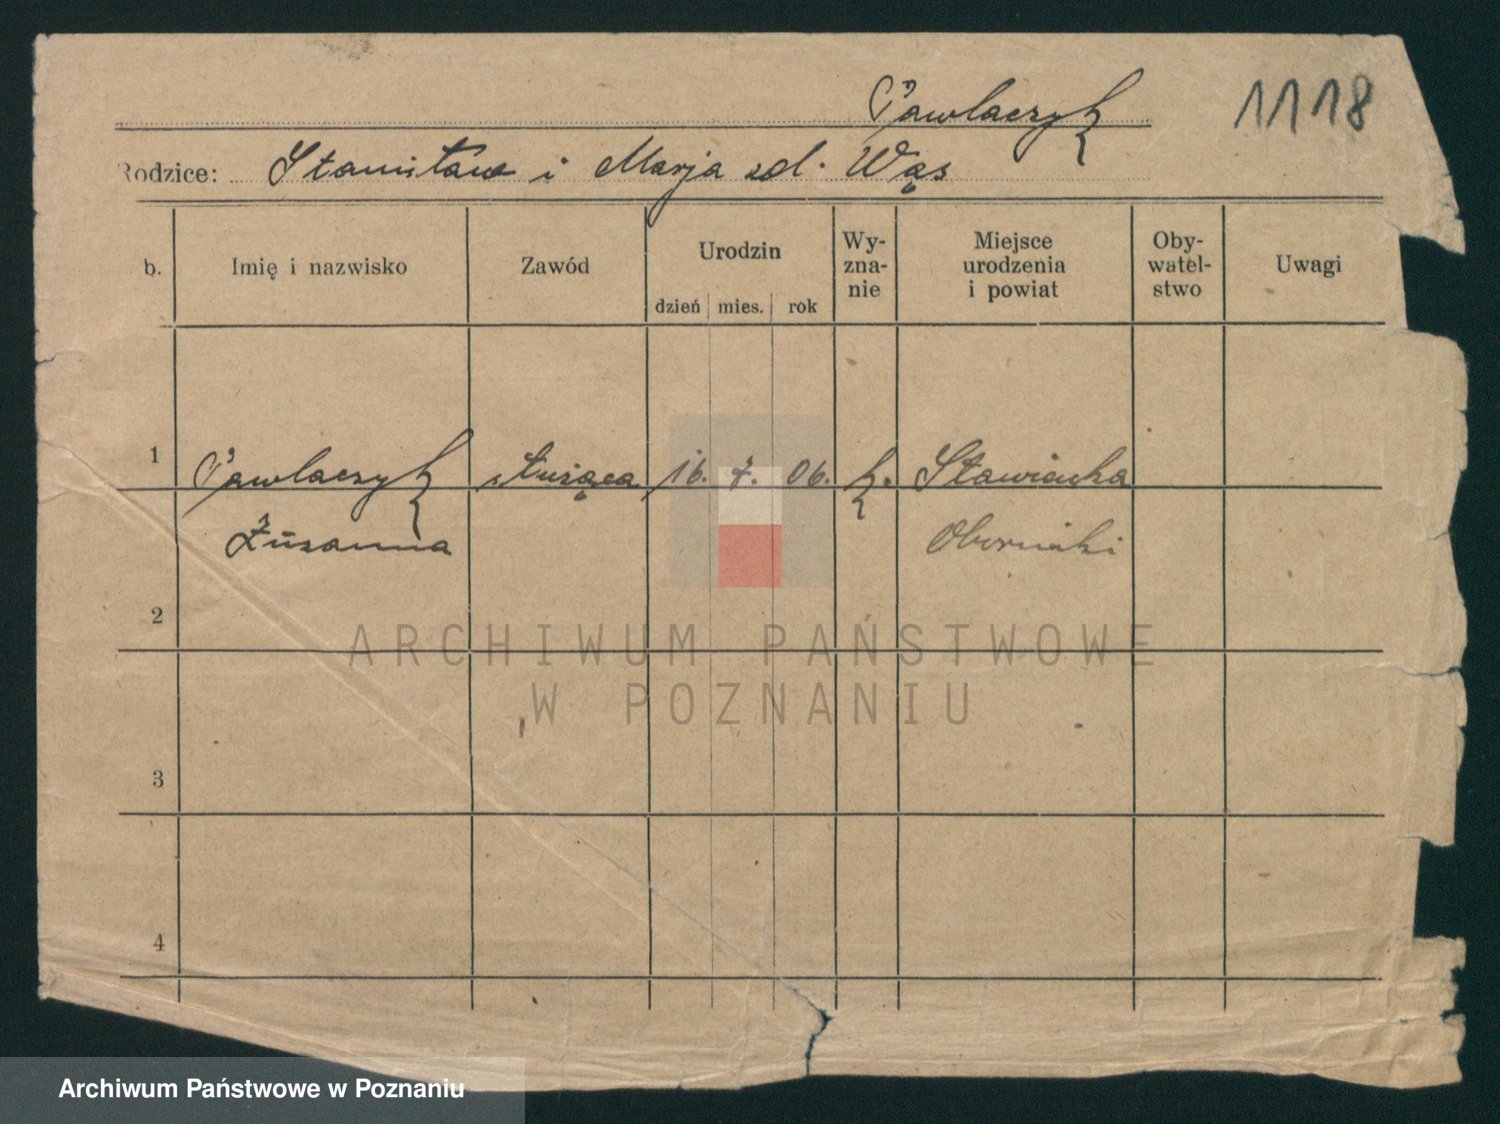 Pawlaczyk 1118
Rodzice: Stanisław i Marja zd. Wąs
b. Imię i nazwisko Zawód Urodzin dzień mies. rok Wy-zna-nie Miejsce urodzenia i powiat Oby-watel-stwo Uwagi
1 Pawlaczyk służąca 16. 7. 06. k.
Zuzanna Oborniki
2
ARCHIWUM PAŃSTWOWE
W POZNANIU
3
4
Archiwum Państwowe w Poznaniu